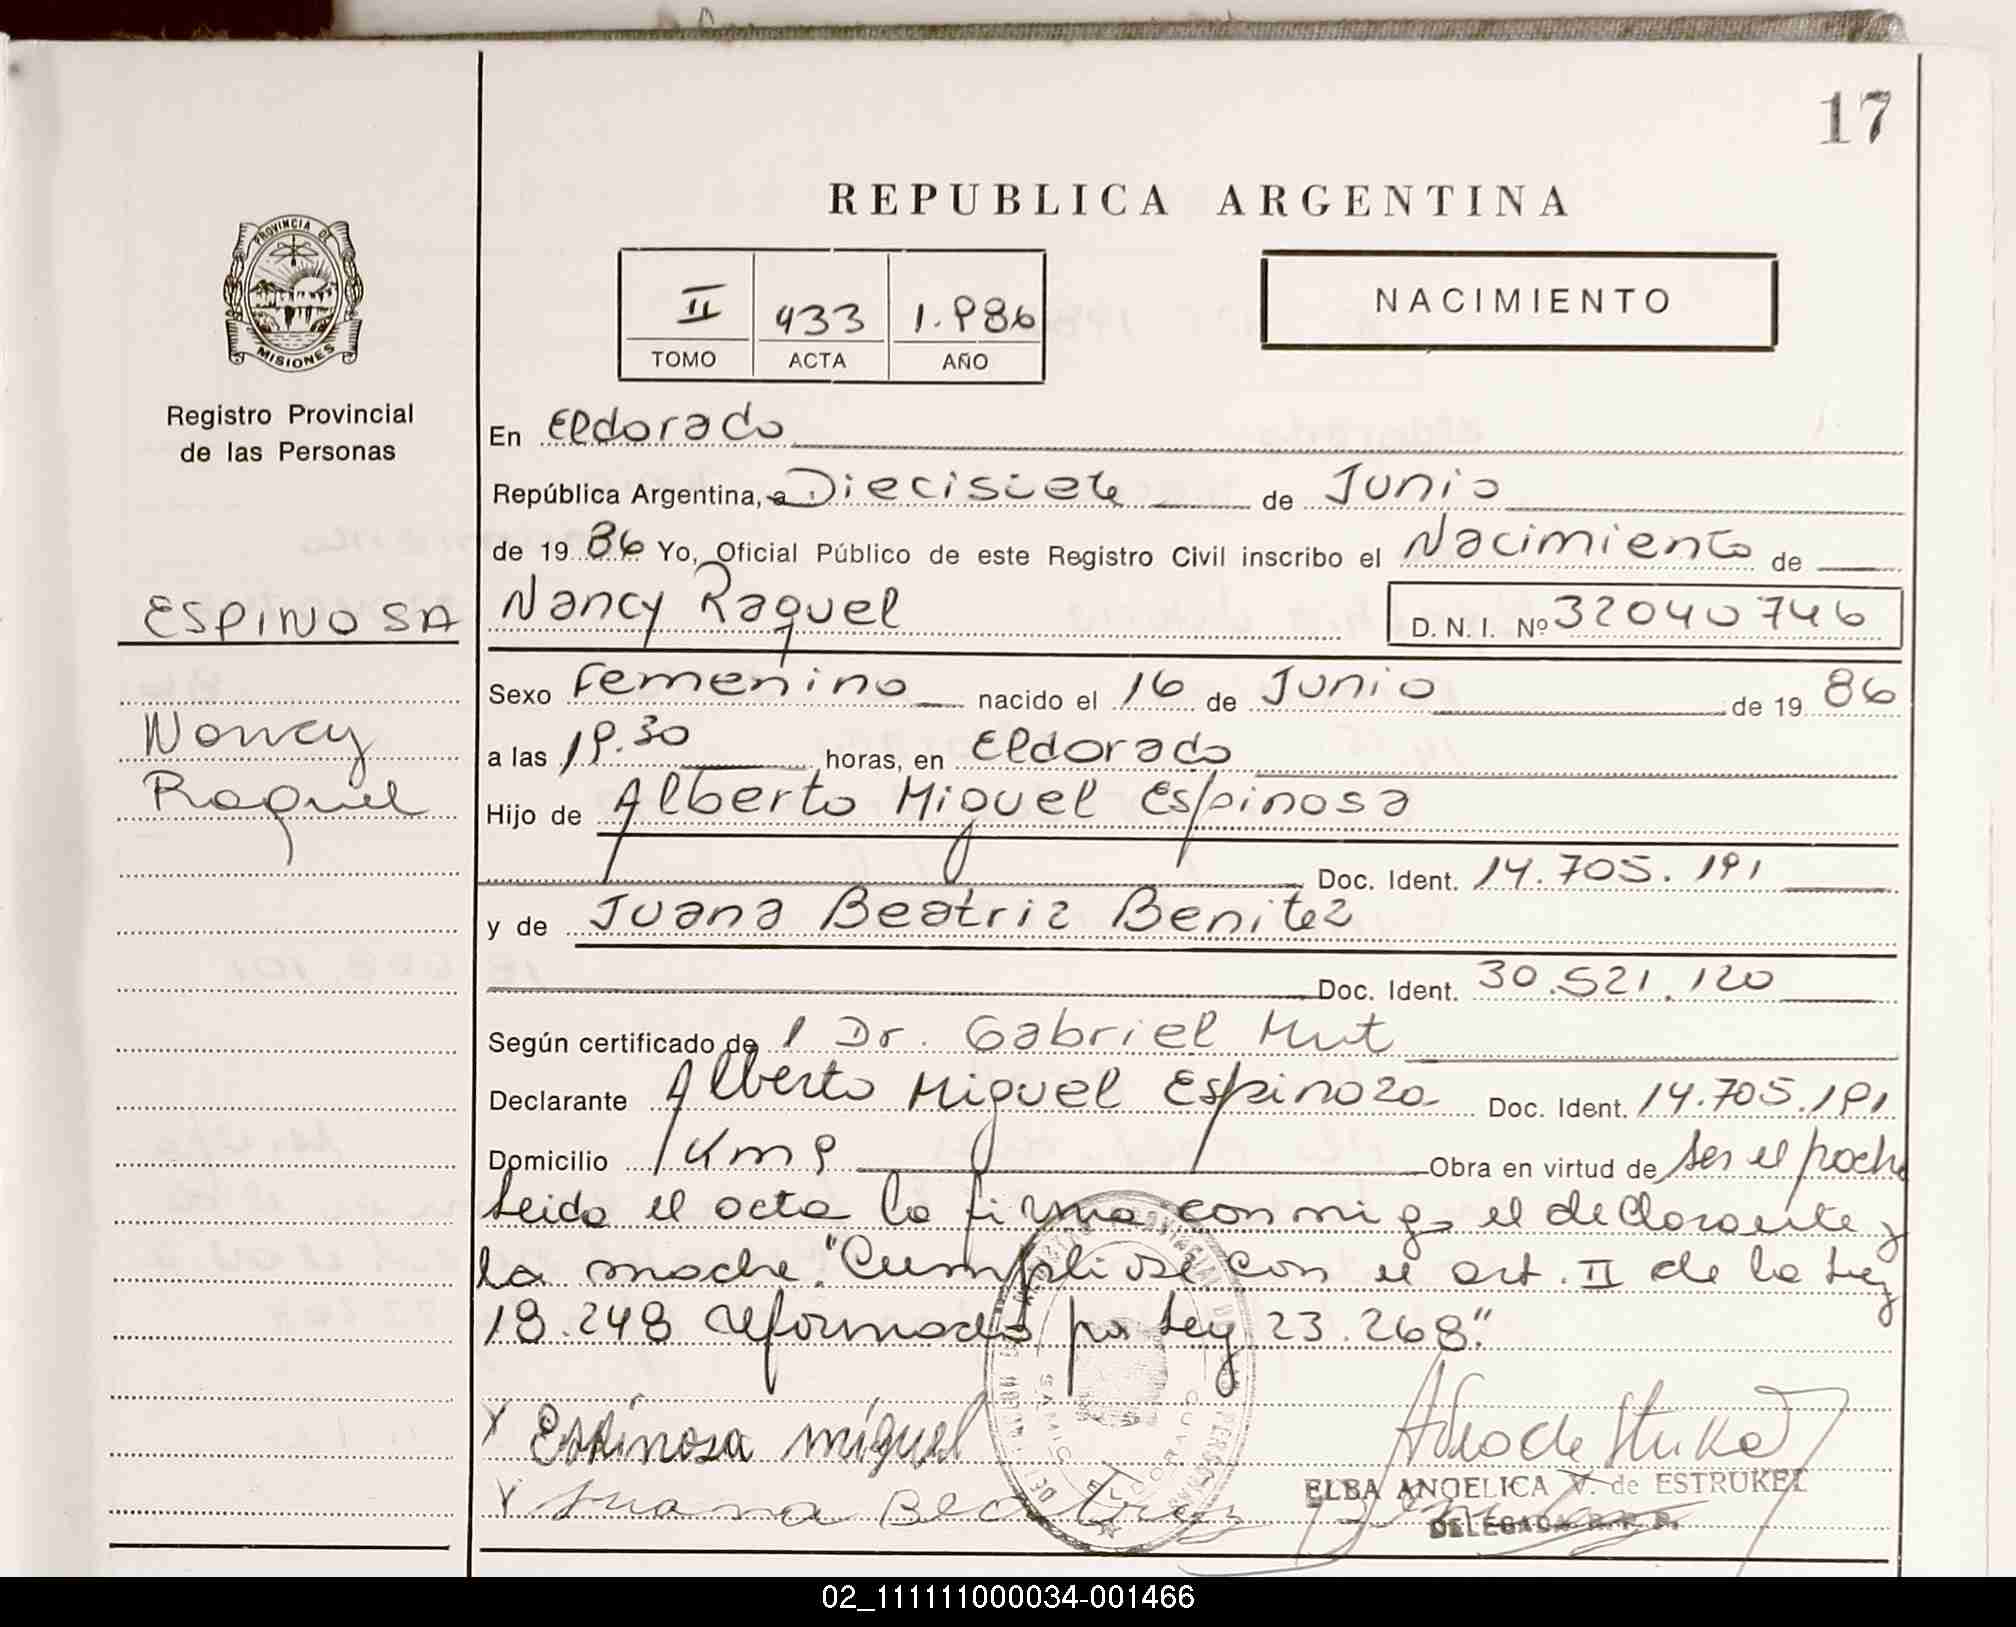 17
REPUBLICA ARGENTINA
PROVINCIA DE
MISIONES
II 433 1.986
TOMO ACTA AÑO
NACIMIENTO
Registro Provincial
de las Personas
En Eldorado
República Argentina, a Diecisiete de Junio
de 19 86 Yo, Oficial Público de este Registro Civil inscribo el Nacimiento de
ESPINOSA Nancy Raquel D. N. I. Nº 32040746
Sexo Femenino nacido el 16 de Junio de 19 86
Nancy
a las 19.30 horas, en Eldorado
Raquel
Hijo de Alberto Miguel Espinosa
Doc. Ident. 14.705.191
y de Juana Beatriz Benitez
Doc. Ident. 30.521.120
Según certificado de l Dr. Gabriel Mut
Declarante Alberto Miguel Espinoza Doc. Ident. 14.705.191
Domicilio Km 9 Obra en virtud de ser el padre
Leida el acta la firma conmigo el declarante y
la madre. "Cumpliose con el art. II de la Ley
18.248 reformada por Ley 23.268".
x Espinosa miguel
x Juana Beatriz
ELBA ANGELICA V. de ESTRUKEL
DELEGADA R. P. P.
02_111111000034-001466